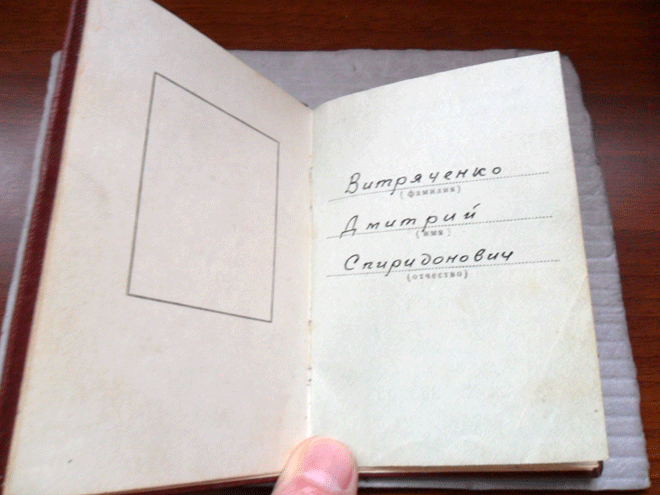 Витряченко
(фамилия)
Дмитрий
(имя)
Спиридонович
(отчество)